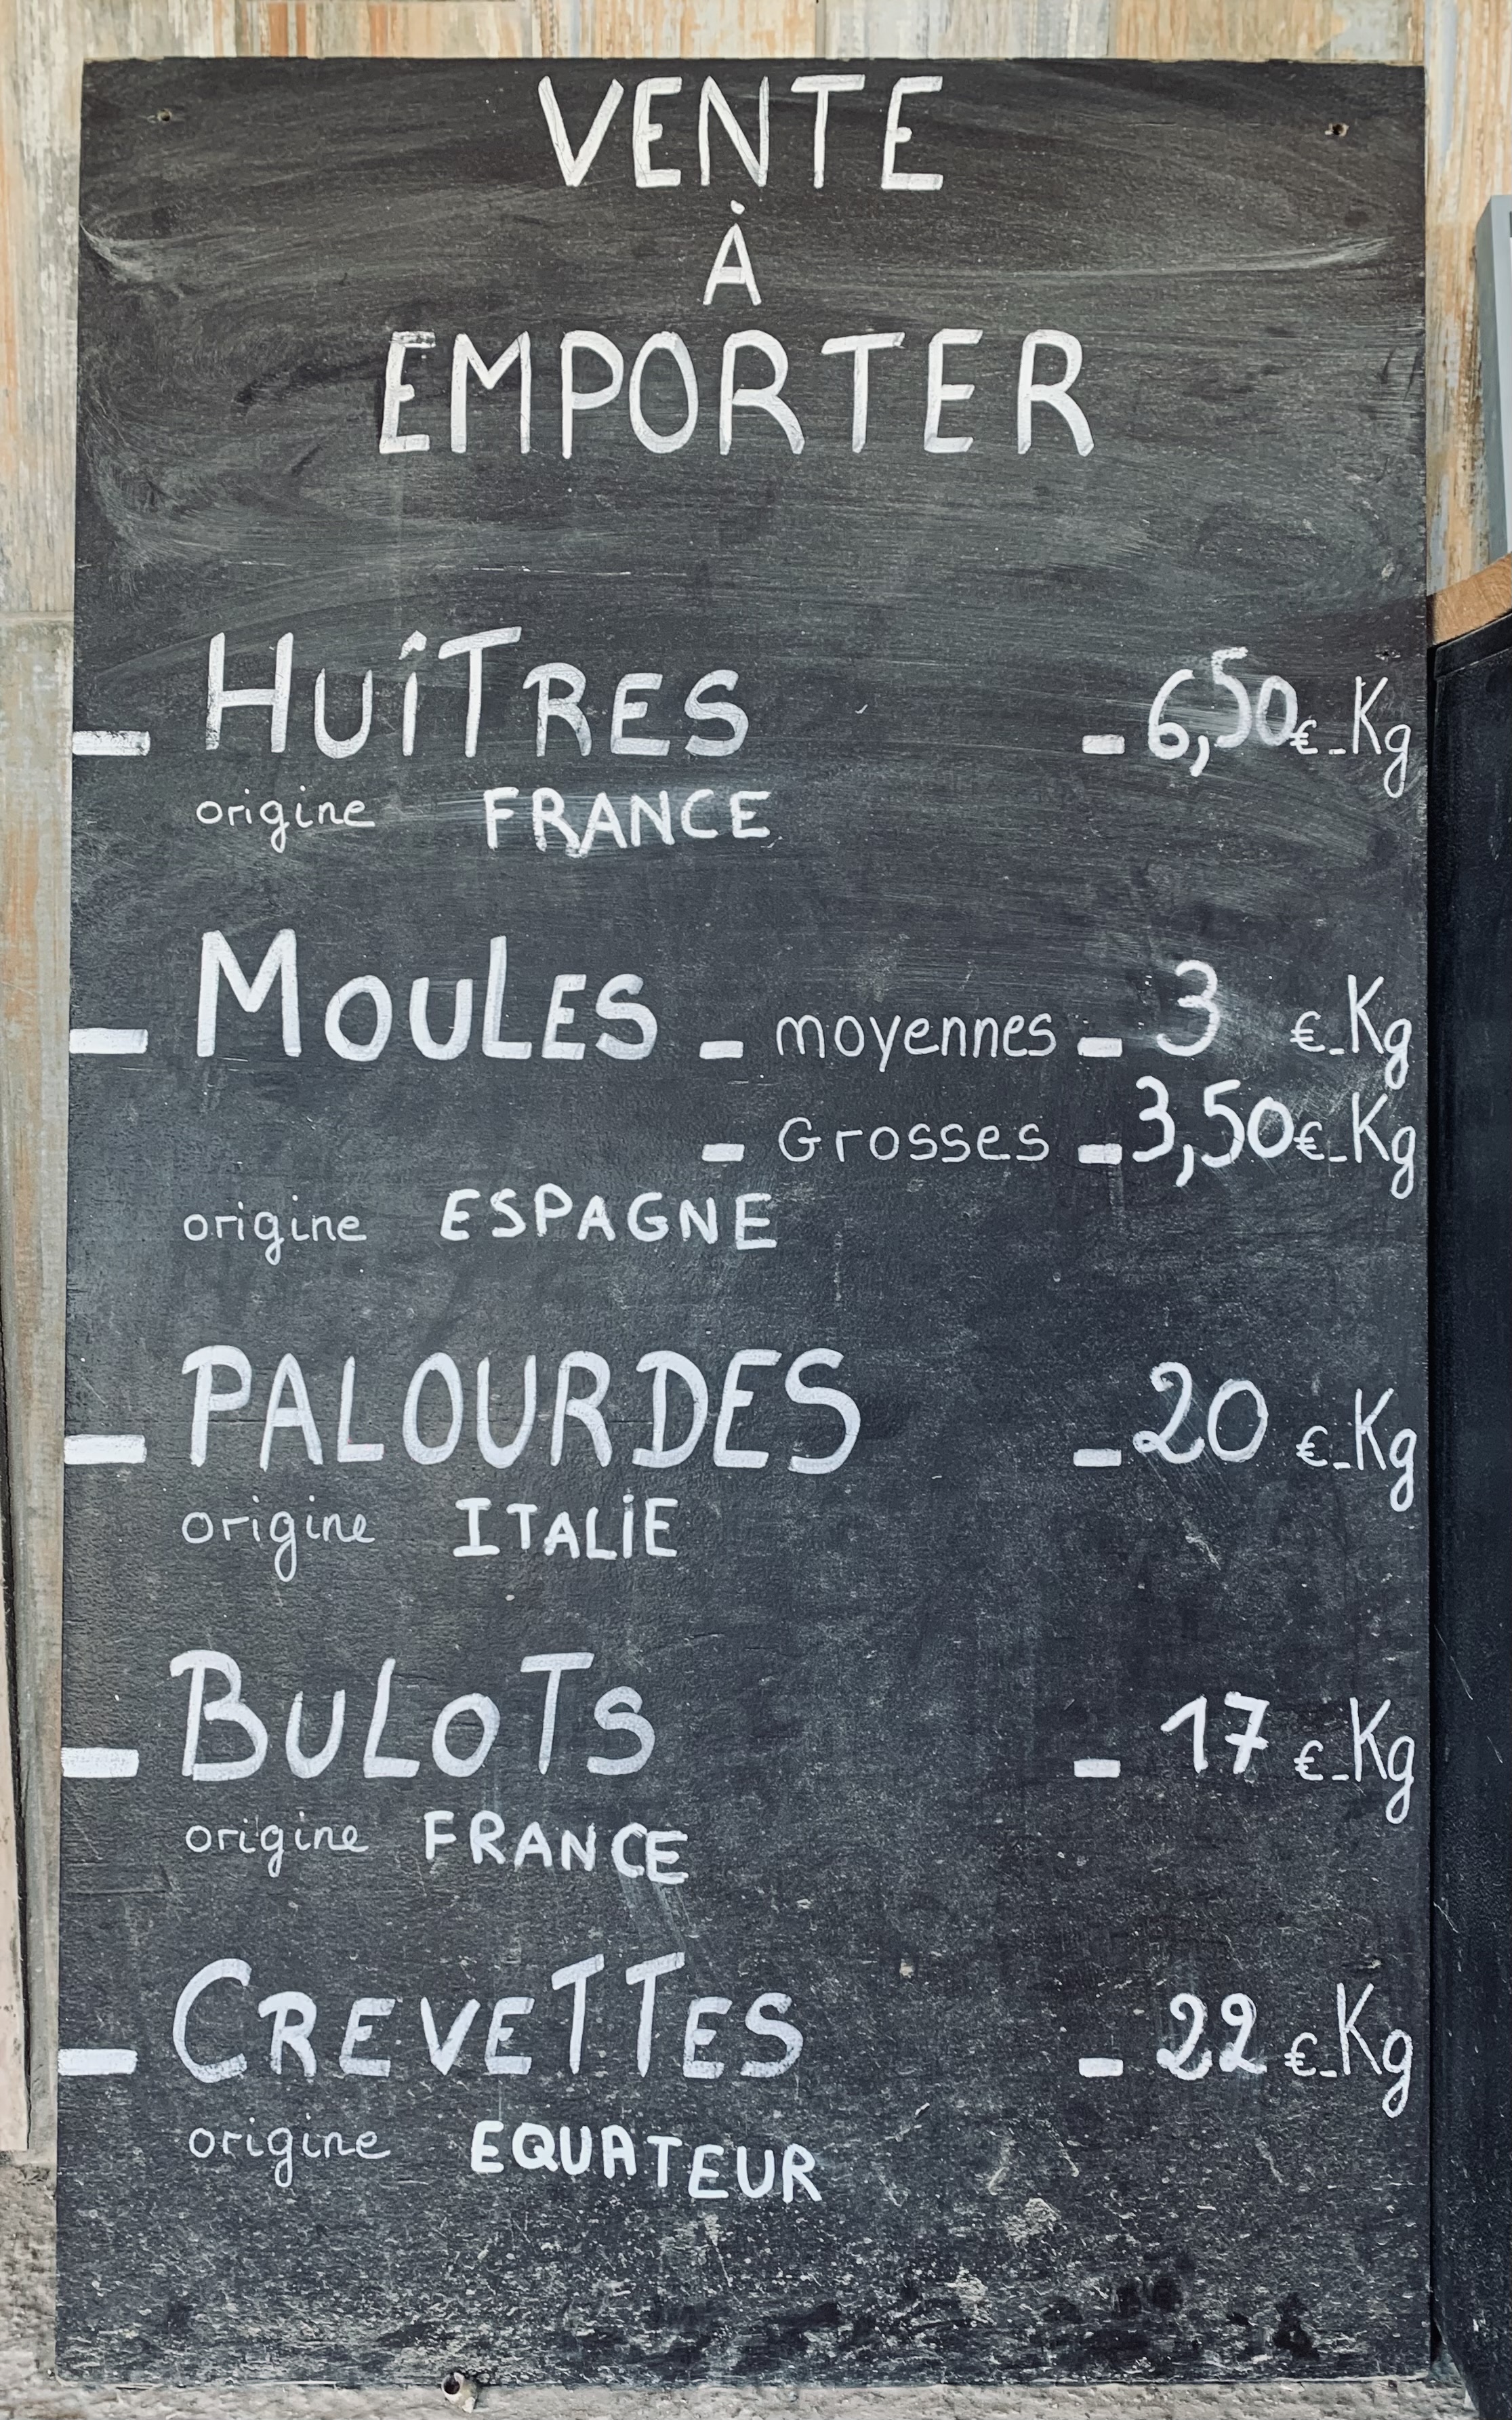 VENTE
À
EMPORTER
- HUÎTRES - 6,50€-Kg
origine FRANCE
- MOULES - moyennes - 3 €-Kg
- Grosses - 3,50€-Kg
origine ESPAGNE
- PALOURDES - 20 €-Kg
origine ITALIE
- BULOTS - 17 €-Kg
origine FRANCE
- CREVETTES - 22 €-Kg
origine EQUATEUR